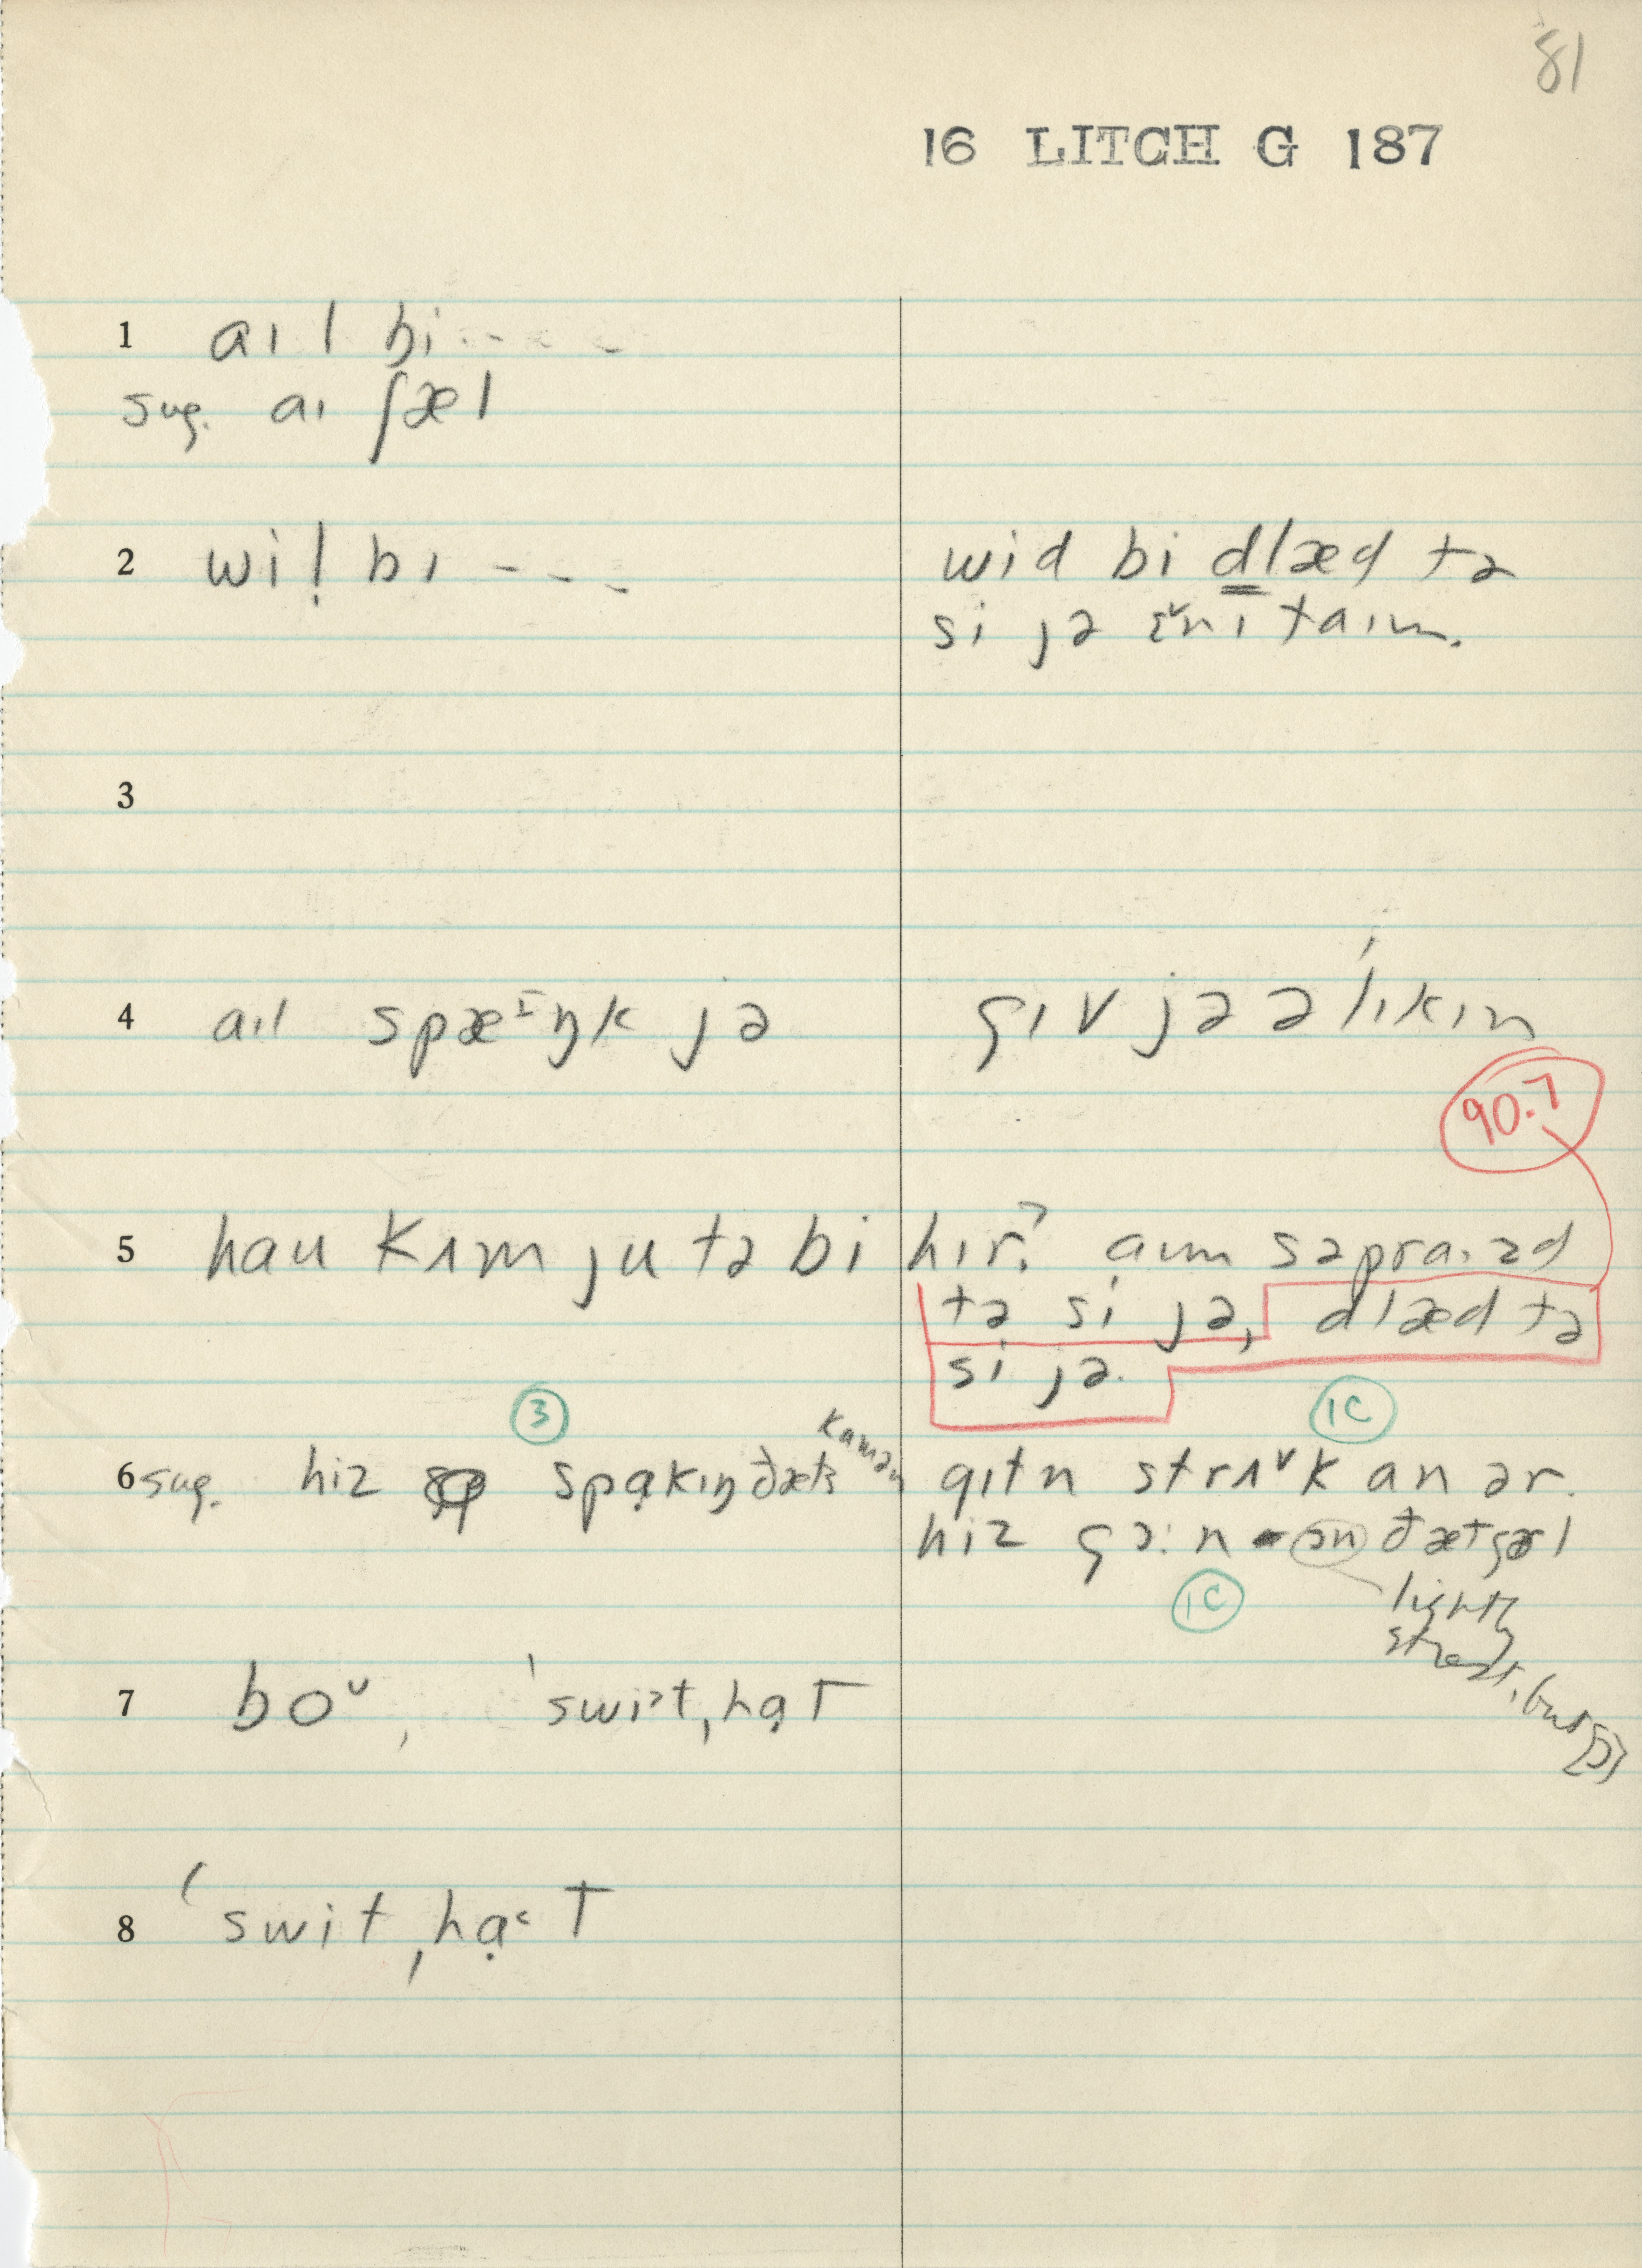 81
16 LITCH G 187
1 aɪ l bi - - - -
sug. aɪ ʃæl
2 wil̩ bɪ - - - -
wid bi dlæd tə
si jə ɛ̌nɪ taɪm.
3
4 aɪl spæᶦŋk jə
gɪv jə ə ˈlɪkɪn
90.7
5 hau kʌm ju tə bi hɪr? aɪm səpraɪzd
tə si jə, dlæd tə
si jə.
3
1C
6 sug. hiz spɑ̣kɪŋ ðæts kamən
gɪtn strʌˇk an ər.
hiz gɔ:n ɔn ðæt gərl
1C
lightly
strest, but [ɔ]
7 boᵛ, ˈswiᵊt ˌhɑ̣T
8 ˈswit ˌhɑ̣˂T